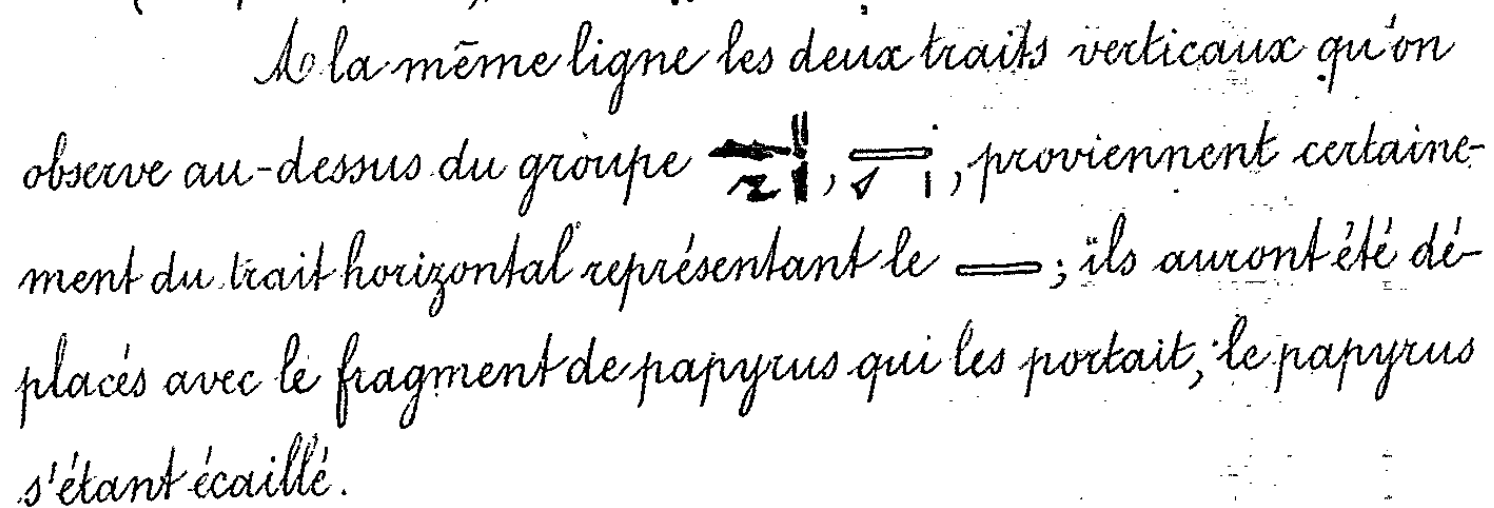 A la même ligne les deux traits verticaux qu'on
observe au-dessus du groupe , , proviennent certaine-
ment du trait horizontal représentant le ; ils auront été dé-
placés avec le fragment de papyrus qui les portait, le papyrus
s'étant écaillé.